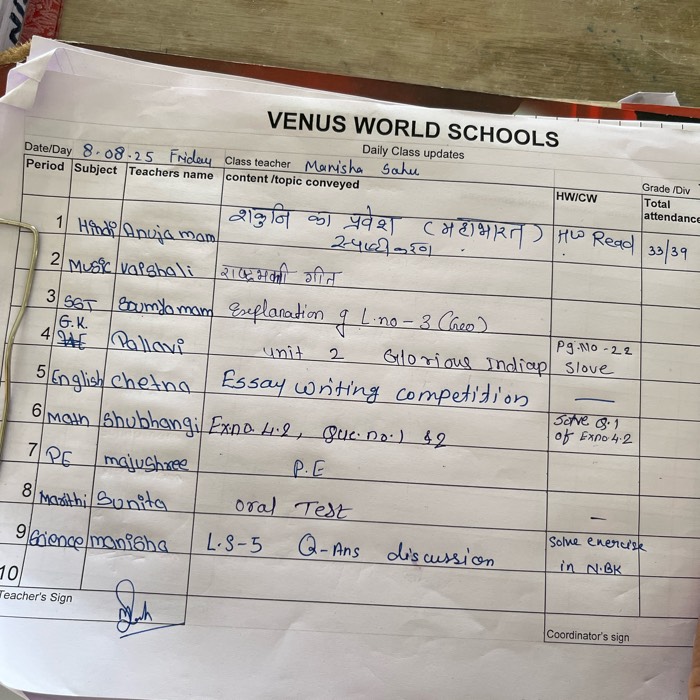 VENUS WORLD SCHOOLS
Daily Class updates
Date/Day 8.08.25 Friday Class teacher Manisha Sahu
Grade /Div
Period Subject Teachers name content /topic conveyed HW/CW Total attendance
1 Hindi Anuja mam शकुनि का प्रवेश (महाभारत) HW Read 33/39
स्पष्टीकरण
2 Music vaishali राष्ट्रभक्ती गीत
3 SST Soumya mam Explanation of L.no-3 (Geo)
4 G.K. Pallavi unit 2 Glorious Indian Pg.No-22
slove
5 English chetna Essay writing competition —
6 Math Shubhangi Ex no. 4.2, Que. no. 1 &2 Solve Q.1
of Exno 4.2
7 PE majushree P.E
8 Marithi Sunita oral Test —
9 Science manisha L.S-5 Q-Ans discussion Solve exercise
in N.BK
10
Teacher's Sign
Coordinator's sign